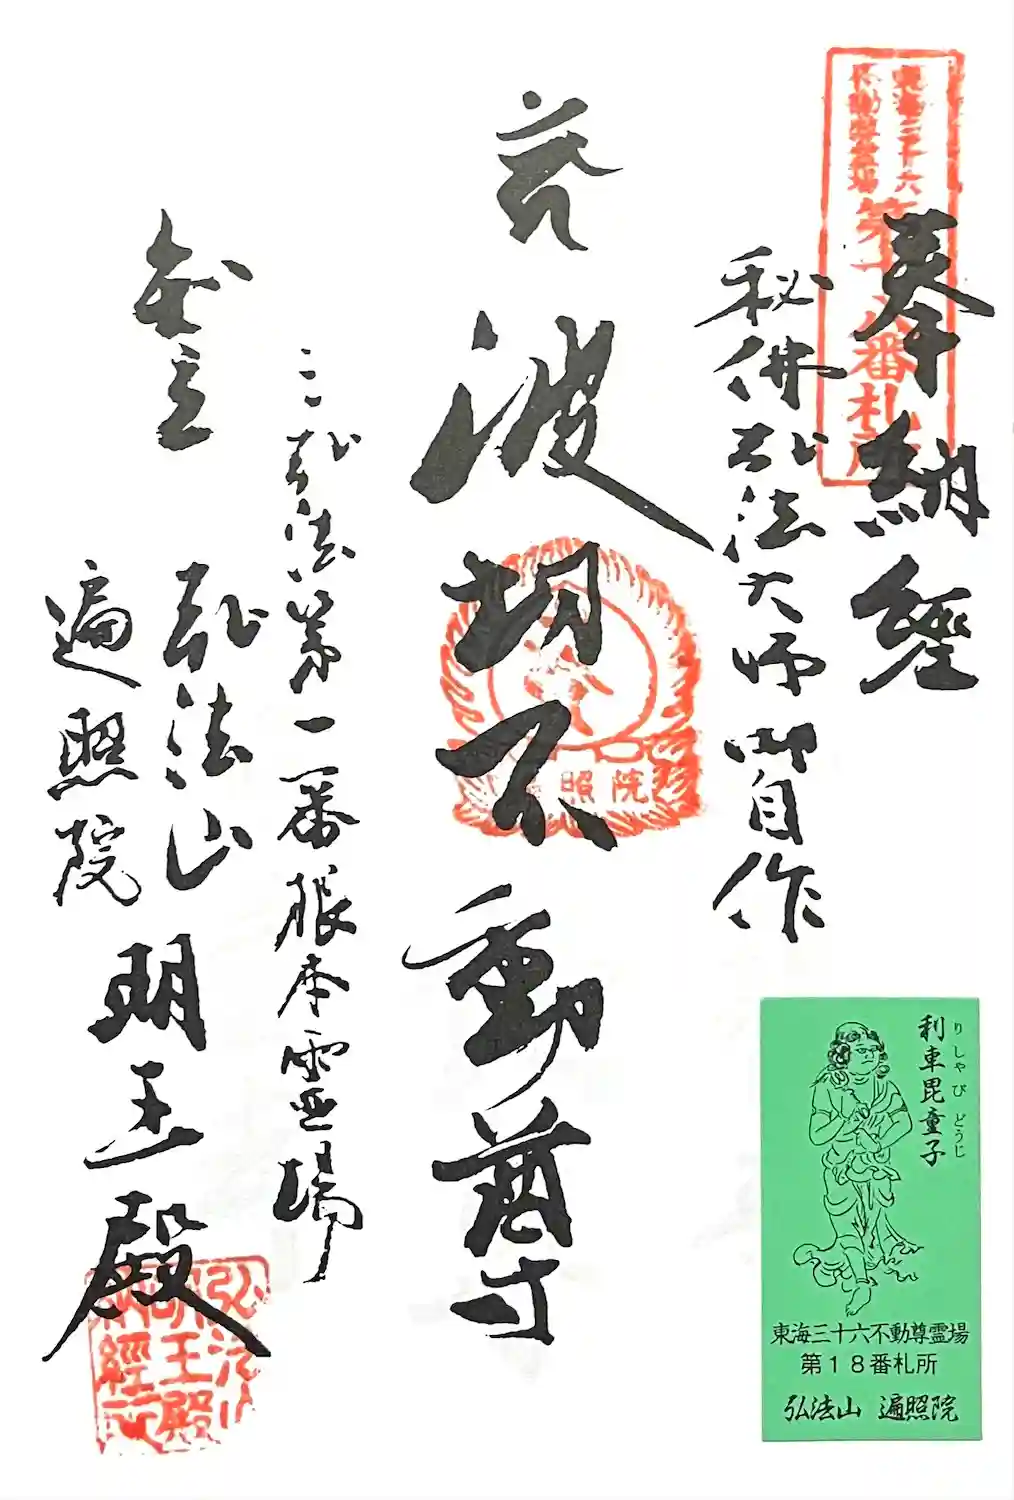 東海三十六
不動尊霊場
第十八番札所
奉納経
秘佛弘法大師御自作
波切不動尊
照院
三弘法第一番根本霊場
弘法山
遍照院
明王殿
弘法山
明王殿
納経所
利車毘童子
りしゃびどうじ
東海三十六不動尊霊場
第18番札所
弘法山 遍照院